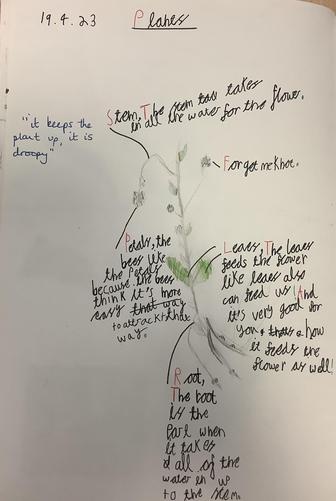 19.4.23 Plants
Stem, The stem takes
in all the water for the flower.
"it keeps the
plant up, it is
droopy"
Forget me knot.
Petals, the
bees like
the petals
because the bees
think it's more
easy that way
to attrackt that
way.
Leaes, The leaes
feeds the flower
like leaes also
can feed us! And
it's very good for
you. how
it feeds the
flower as well!
Root,
The root
is the
Part when
it takes
all of the
water in up
to the stem.